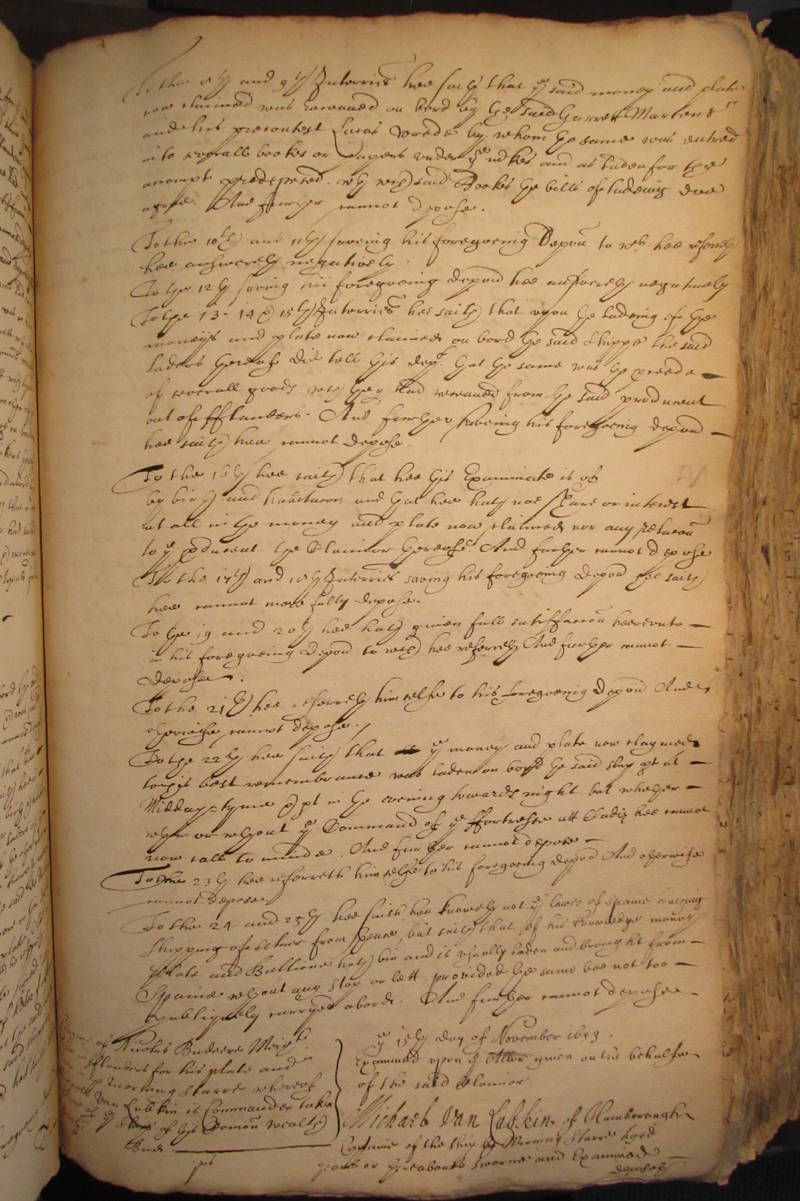 To the 8th and 9th Interries hee saith that ye said money and plate
now claimed was received on bord by the said Garrett Martens
and his precontest Lucas by whom the same was entred
into severall bookes or papers under ye and as laden for the
accompt predeposed. said Bookes the bills of ladeing doe
agree. And further cannot depose.
To the 10th and 11th saveing his foregoeing Depon to wch hee referreth
hee answereth negatively.
To the 12th saving his foregoeing depon hee answereth negatively
To the 13. 14 & 15th Interries hee saith that upon the ladeing of the
moneys and plate now claimed on bord the said shippe the said
laders thereof did tell this dept that the same was the proceede
of severall goods wch they had received from the said producent
out of fflanders. And further saveing his foregoeing depon
hee saith hee cannot depose.
To the 16th hee saith that hee this Examinate is of
by birth and habitacon and that hee hath noe share or interest
at all in the money and plate now claimed nor any relacon
to ye producent the Claimor thereof And further cannot depose
To the 17th and 18th Interries saving his foregoeing depon hee saith
hee cannot more fully depose.
To the 19 and 20th hee hath given full satisfaccon heereunto
in his foregoeing Depon to wch hee referreth And further cannot
depose.
To the 21th hee referreth himselfe to his foregoeing depon And
otherwise cannot depose.
To the 22th hee saith that ye money and plate now claymed
to his best remembrance was laden on bord the said ship pt at
Midday-tyme & pt in the evening towards night but whether
wthin or wthout ye Command of ye ffortresse att Cadiz hee cannot
now call to minde. And further cannot depose.
To the 23th hee referreth himselfe to his foregoeing depon And otherwise
cannot depose
To the 24 and 25th hee saith hee knoweth not ye lawes of Spaine
shipping of silver from thence, but saith that of his knowledge money
plate and Bullion hath bin and is usually laden and brought from
Spaine wthout any stop or lett provided the same bee not too
publiquely carryed abord. And further cannot depose
of
fflanders for his plate and
Morning Starre whereof
Van Lubkin is Commander taken
of this Comon Wealth
ye 15th day of November 1653.
Examined upon ye Allon given on the behalfe
of the said Claimor
Michael Van Lubkin of Hamborough
Captaine of the ship the Morning Starre aged
yeares or thereabouts sworne and Examined
deposeth